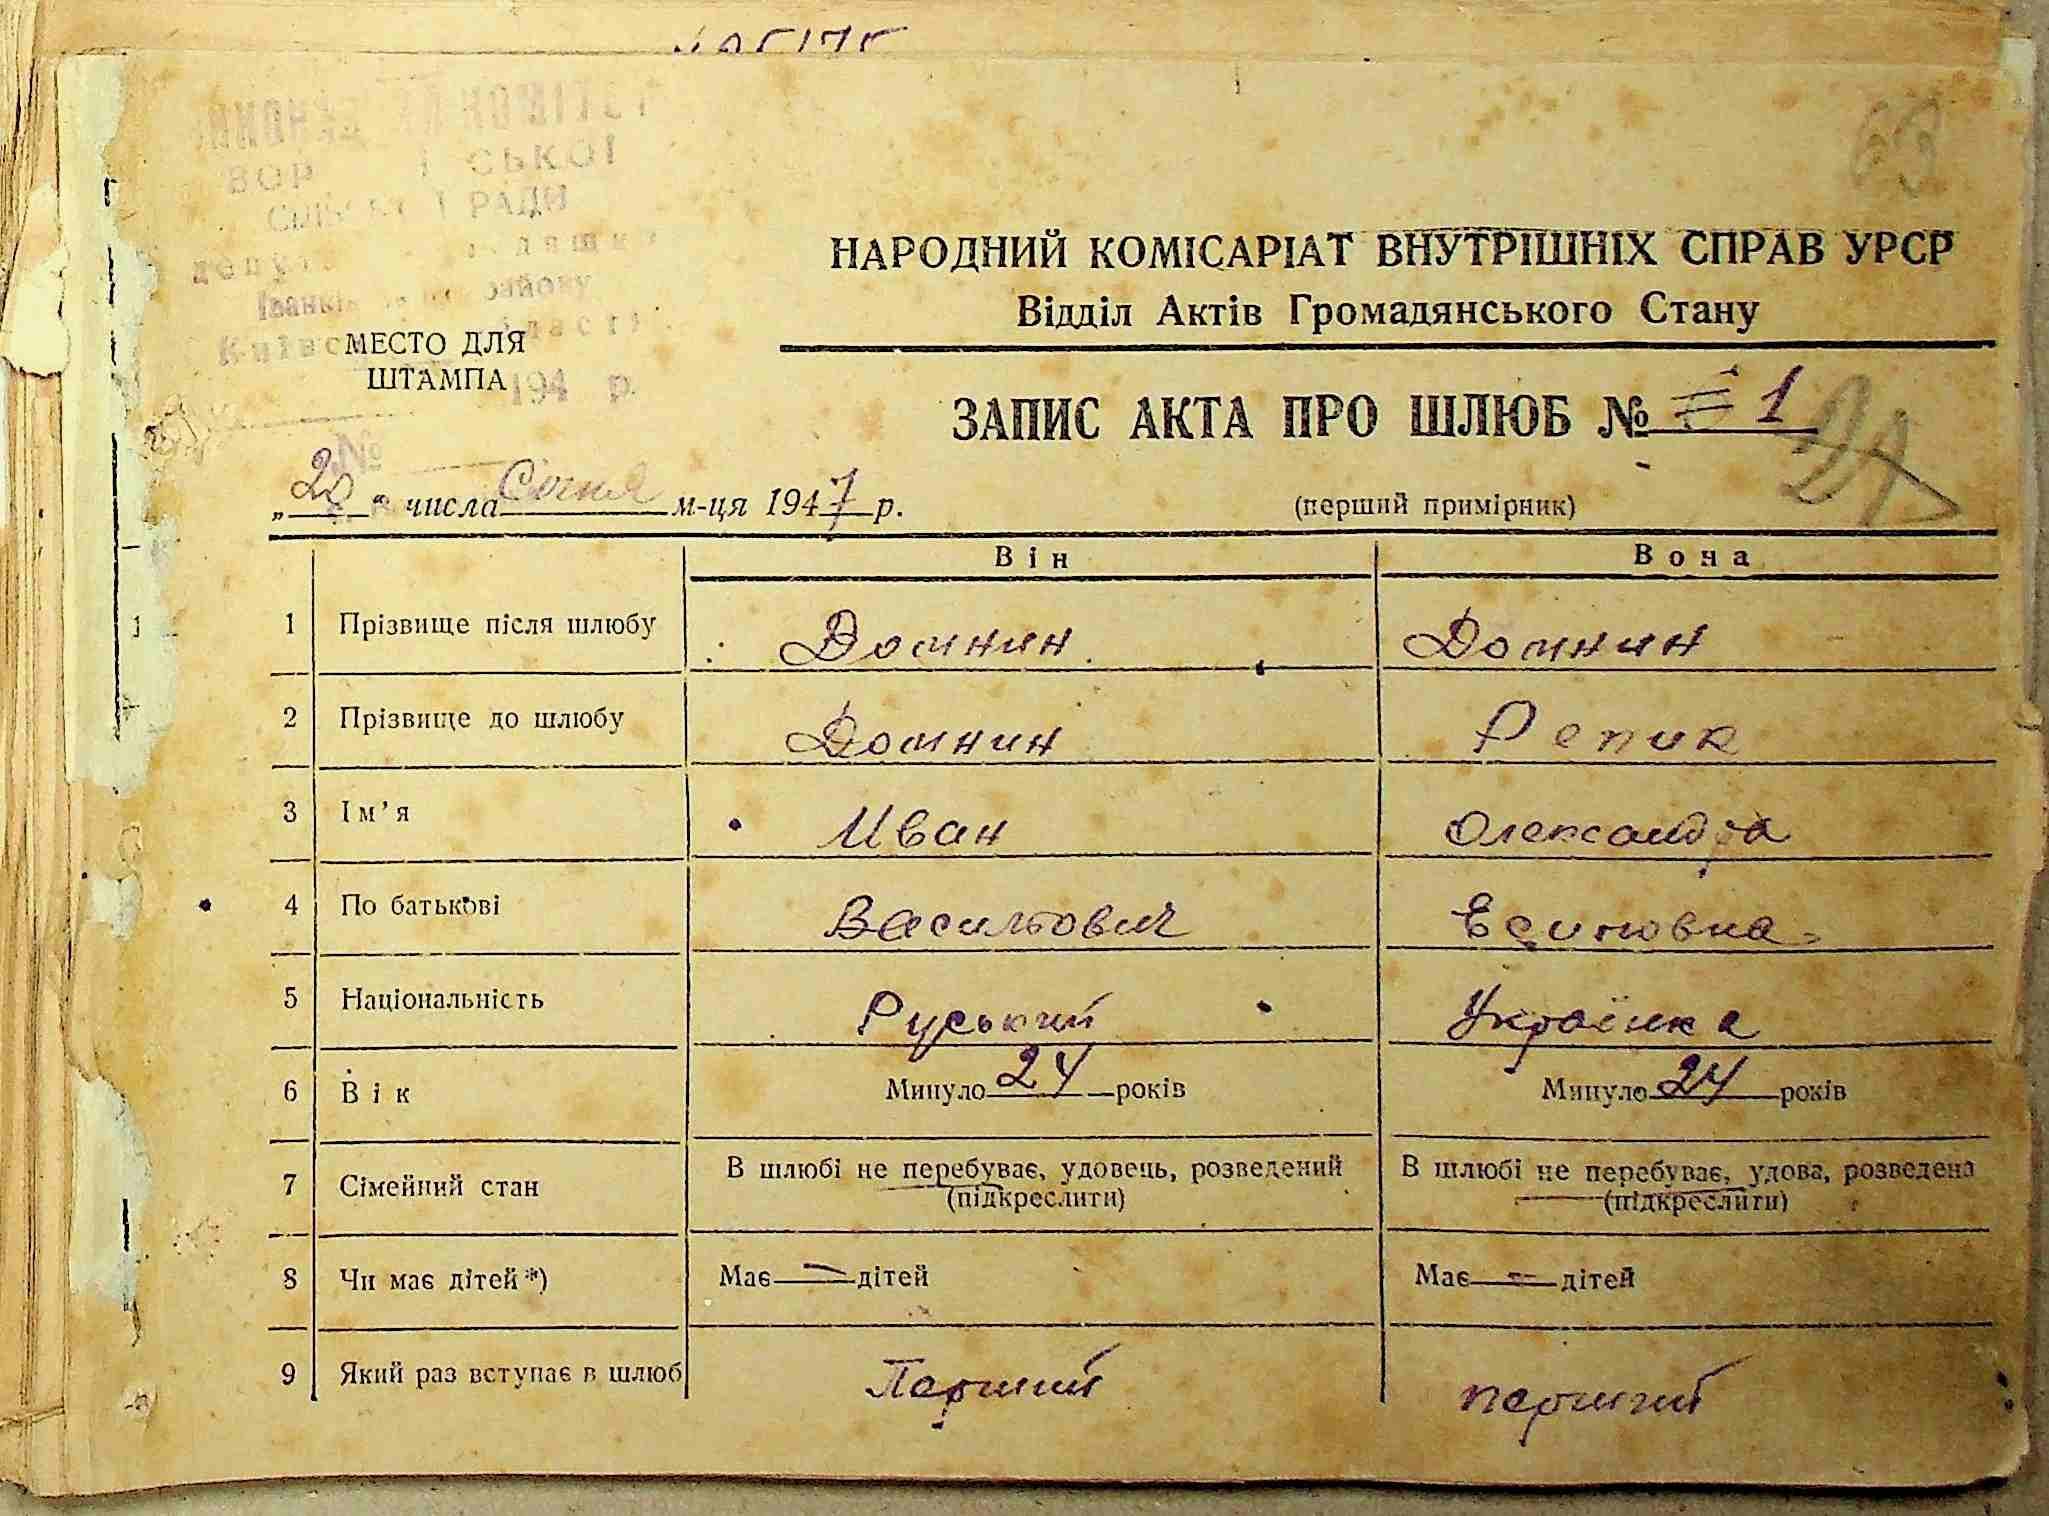 СІЛЬСЬКОЇ РАДИ
194 р.
№
63
НАРОДНИЙ КОМІСАРІАТ ВНУТРІШНІХ СПРАВ УРСР
Відділ Актів Громадянського Стану
МЕСТО ДЛЯ
ШТАМПА
ЗАПИС АКТА ПРО ШЛЮБ № 1
„20“ числа Січня м-ця 1947 р.
(перший примірник)
Він Вона
1 Прізвище після шлюбу Домнин Домнин
2 Прізвище до шлюбу Домнин Репик
3 Ім’я Иван Олександра
4 По батькові Васильович Есиповна
5 Національність Руський Українка
6 Вік Минуло 24 років Минуло 24 років
7 Сімейний стан В шлюбі не перебуває, удовець, розведений В шлюбі не перебуває, удова, розведена
(підкреслити) (підкреслити)
8 Чи має дітей*) Має — дітей Має — дітей
9 Який раз вступає в шлюб Перший перший